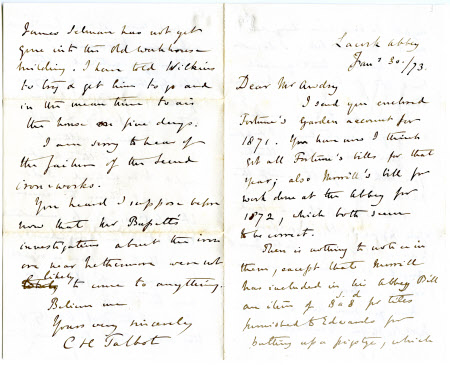 Lacock Abbey
Jany 30./73.
Dear Mr Awdry
I send you enclosed
Fortune's Garden account for
1871. You have now I think
got all Fortune's bills for that
Year; also Morrill's bill for
work done at the Abbey for
1872, which both seem
to be correct.
There is nothing to notice in
them, except that Morrill
has included in his Abbey Bill
an item of 8s. 8d for tiles
furnished to Edwards for
building up a pigstye, which
James Selman has not yet
gone into the old workhouse
building. I have told Wilkins
to try & get him to go and
in the mean time to air
the house on fine days.
I am sorry to hear of
the failure of the Seend
iron works.
You heard I suppose before
now that Mr
investigations about the iron
ore near Nethermore were not
likely to come to anything.
Believe me
Yours very sincerely
C H Talbot